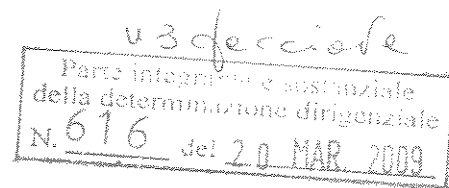 Parte integrante e sostanziale
della determinazione dirigenziale
N. 616 del 20 MAR. 2009